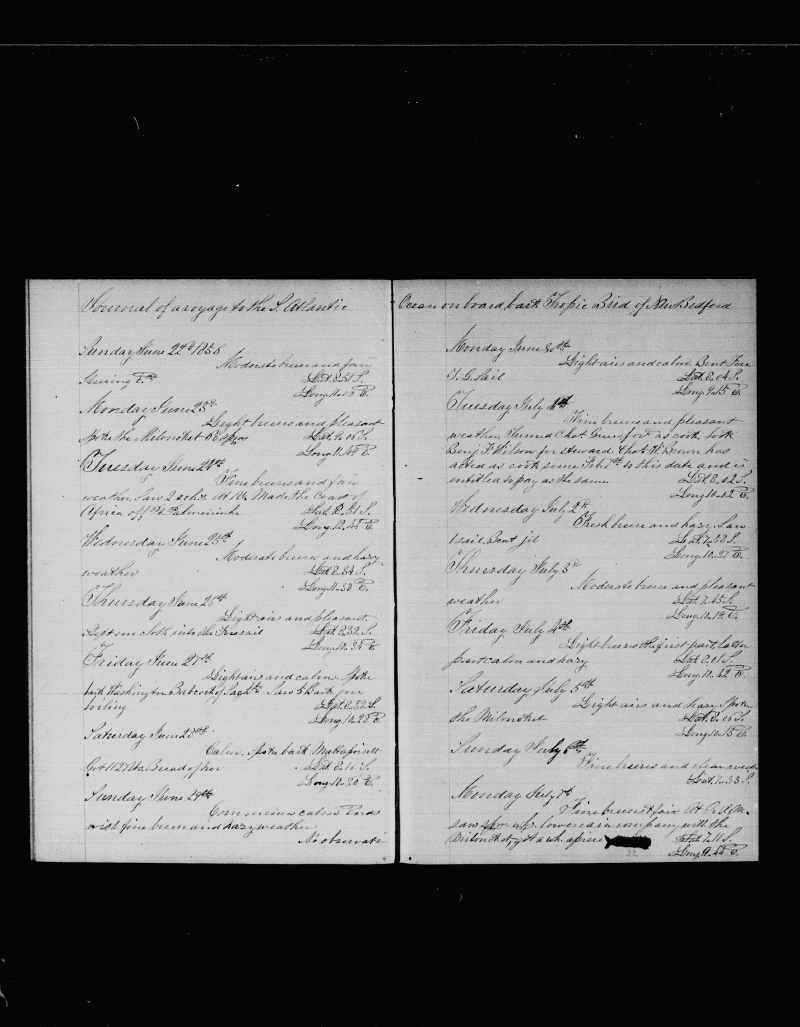 Journal of a voyage to the S. Atlantic
Sunday June 22nd 1856
Moderate breeze and fair
Steering
Lat. 8.51 S.
Long. 11.02 E.
Monday June 23d
Light breeze and pleasant
Spoke the Milwood
Lat. 9.05 S.
Long. 11.44 E.
Tuesday June 24th
Fine breeze and fair
weather, Saw 2 sch's. At 11 Made the Coast of
Africa off Pt. Palmerinha
Lat. 8.51 S.
Long. 12.44 E.
Wednesday June 25th
Moderate breeze and hazy
weather
Lat. 8.34 S.
Long. 11.38 E.
Thursday June 26th
Light air and pleasant
Kept one cloth into the Foresail
Lat. 8.32 S.
Long. 10.35 E.
Friday June 27th
Light airs and calm. Spoke
bark Washington Babcock of Sag Hr. Saw 5 Bark one
boiling
Lat. 8.32 S.
Long. 10.28 E.
Saturday June 28th
Calm, spoke bark Mattapoisett
Got 1127 lbs Bread of her
Lat. 8.16 S.
Long. 10.30 E.
Sunday June 29th
Commences calm Ends
with fine breeze and hazy weather
No observati
Ocean on board bark Tropic Bird of New Bedford
Monday June 30th
Light airs and calm. Bent Fore
T. G. Sail
Lat. 8.04 S.
Long. 9.45 E.
Tuesday July 1st
Fine breeze and pleasant
weather, Turned Chas. as cook, took
Benj. F. Wilson for steward. Chas. W. Brown has
acted as cook since Feb 7th to this date and is
entitled to pay as the same
Lat. 8.02 S.
Long. 10.02 E.
Wednesday July 2d
Fresh breeze and hazy. Saw
1 sail. Bent jib
Lat. 7.58 S.
Long. 10.37 E.
Thursday July 3d
Moderate breeze and pleasant
weather
Lat. 7.45 S.
Long. 10.19 E.
Friday July 4th
Light breeze the first part, latter
part calm and hazy
Lat. 8.01 S.
Long. 10.42 E.
Saturday July 5th
Light airs and hazy. Spoke
the Milwood
Lat. 8.05 S.
Long. 10.15 E.
Sunday July 6th
Fine breeze and clear weath
Lat. 7.53 S.
Monday July 7th
Fine breeze & fair At
saw lowered in company with the
got a wh. apiece
22
Lat. 7.11 S.
Long. 9.44 E.